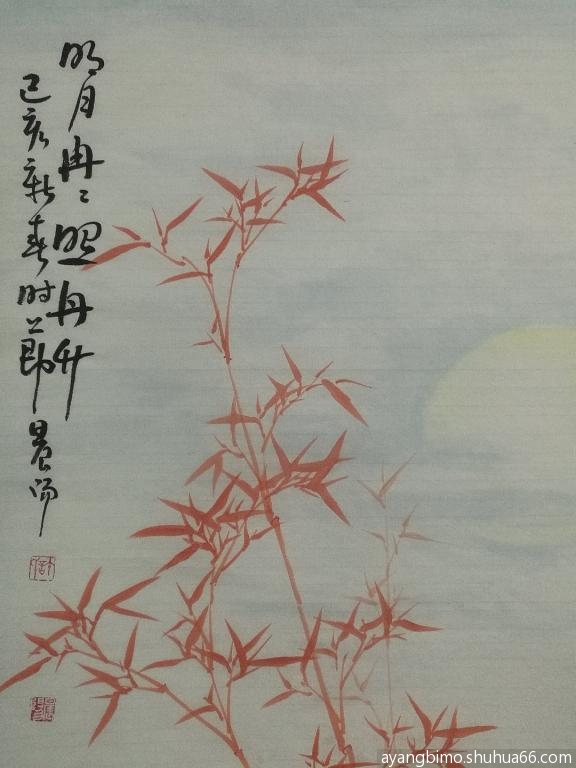 明月冉〻照丹竹
己亥新春时節
ayangbimo.shuhua66.com